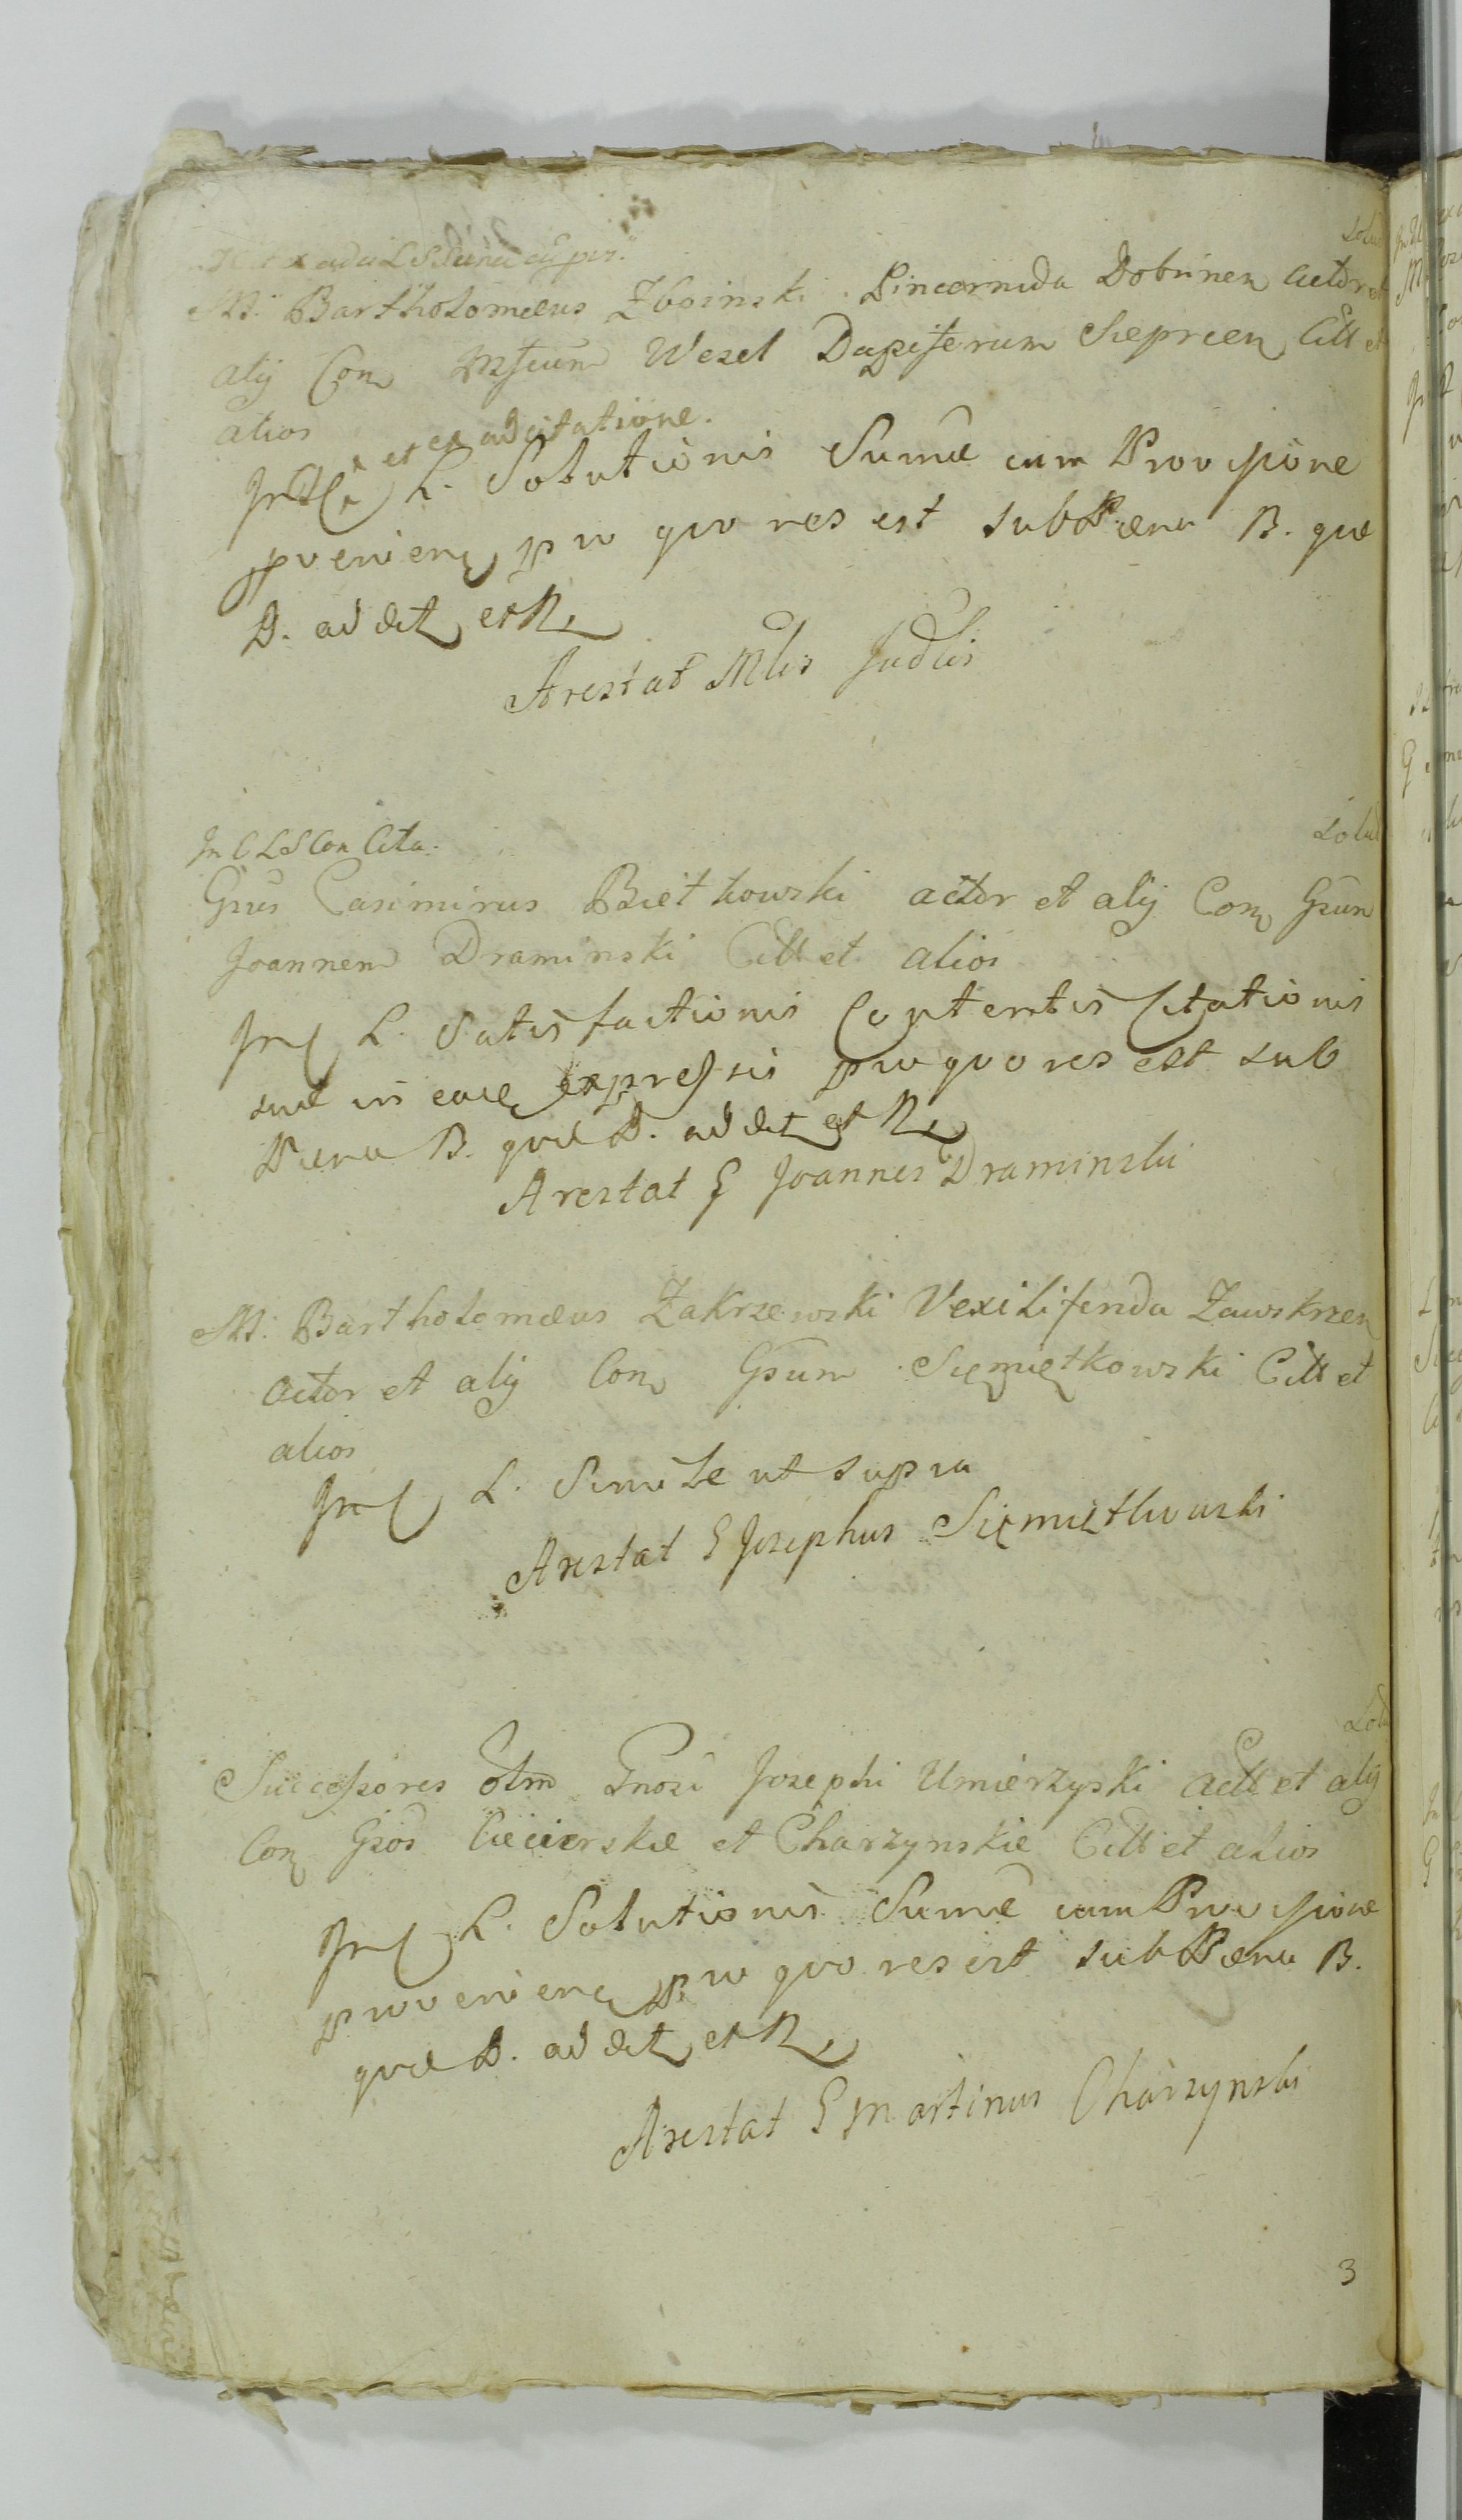 Solut
M: Bartholomæus Zboinski Pincernida Dobrinen actor et
alij Con Mfcum Wesel Dapiferum Sieprcen Citt et
alios
et ex adcitatione.
L. Solutionis Sumæ cum Provisione
provenien pro quo res est sub Pæna B. quæ
D. addet et R
Arestat Mlis Judlis
In C L S Con Cita.
Solut
Gsus Casimirus Bietkowski actor et alij Con Gsum
Joannem Draminski Citt et alios
In C L. Satisfactionis Contentis Citationis
suæ in eade expressis pro quo res est sub
Pæna B. quæ D. addet et R
Arestat G Joannes Draminski
M: Bartholomæus Zakrzewski Vexilifenda Zawskrzen
actor et alij Con Gsum Siemiętkowski Citt et
alios
In C L. Simile ut supra
Arestat G Josephus Siemiętkowski
Solut
Successores olm Gnosi Josephi Umierzyski actt et alij
Con Gsos Ciecierskie et Charzynskie Citt et alios
In C L. Solutionis Sumæ cum Provisione
provenien pro quo res est sub Pæna B.
quæ D. addet et R
Arestat G Martinus Charzynski
3